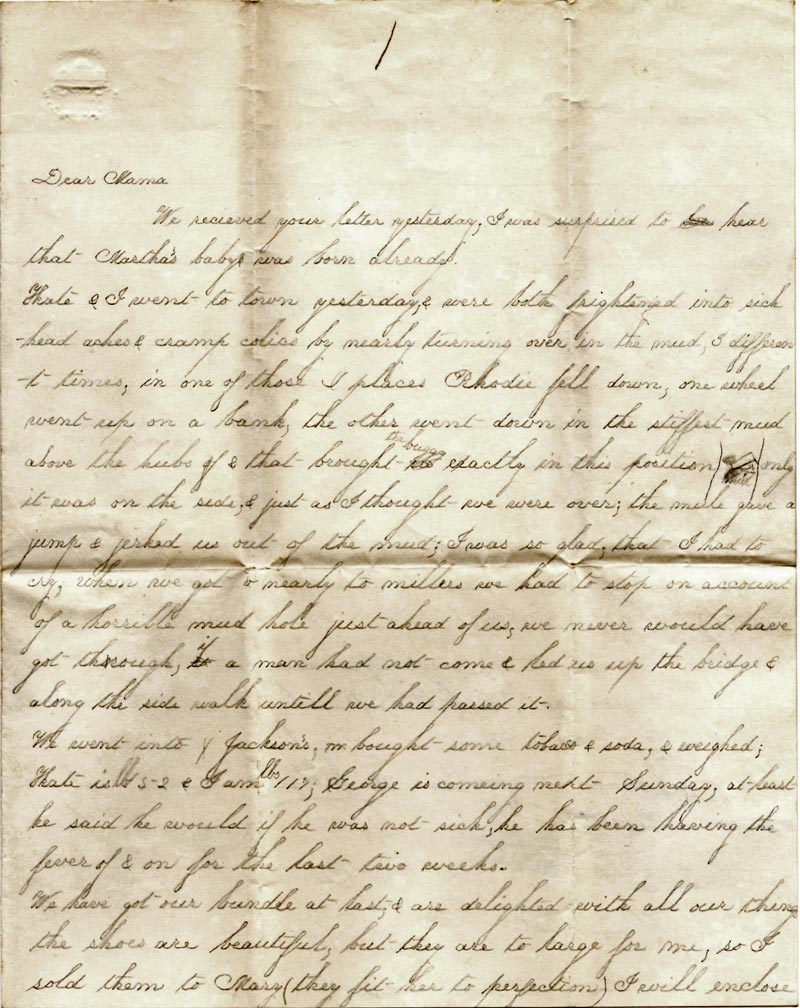 1
Dear Mama
We recieved your letter yesterday, I was surprised to hear
that Martha's baby was born already.
Kate & I went to town yesterday, & were both frightened into sick
-head aches & cramp colics by nearly turning over in the mud, 3 differen
-t times, in one of those places Rhodie fell down, one wheel
went up on a bank, the other went down in the stiffest mud
above the hubs of & that brought the buggy exactly in this position only
it was on the side, & just as I thought we were over; the mule gave a
jump & jerked us out of the mud; I was so glad, that I had to
cry; when we got to nearly to millers we had to stop on account
of a horrible mud hole just ahead of us, we never would have
got through, If a man had not come & led us up the bridge &
along the side walk untill we had passed it.
We went into Jackson's, bought some tobaco & soda, & weighed;
Kate is & I am lbs 117; George is comeing next Sunday, at least
he said he would if he was not sick, he has been having the
fever of & on for the last two weeks.
We have got our bundle at last, & are delighted with all our things
the shoes are beautiful, but they are to large for me, so I
sold them to Mary (they fit her to perfection) I will enclose